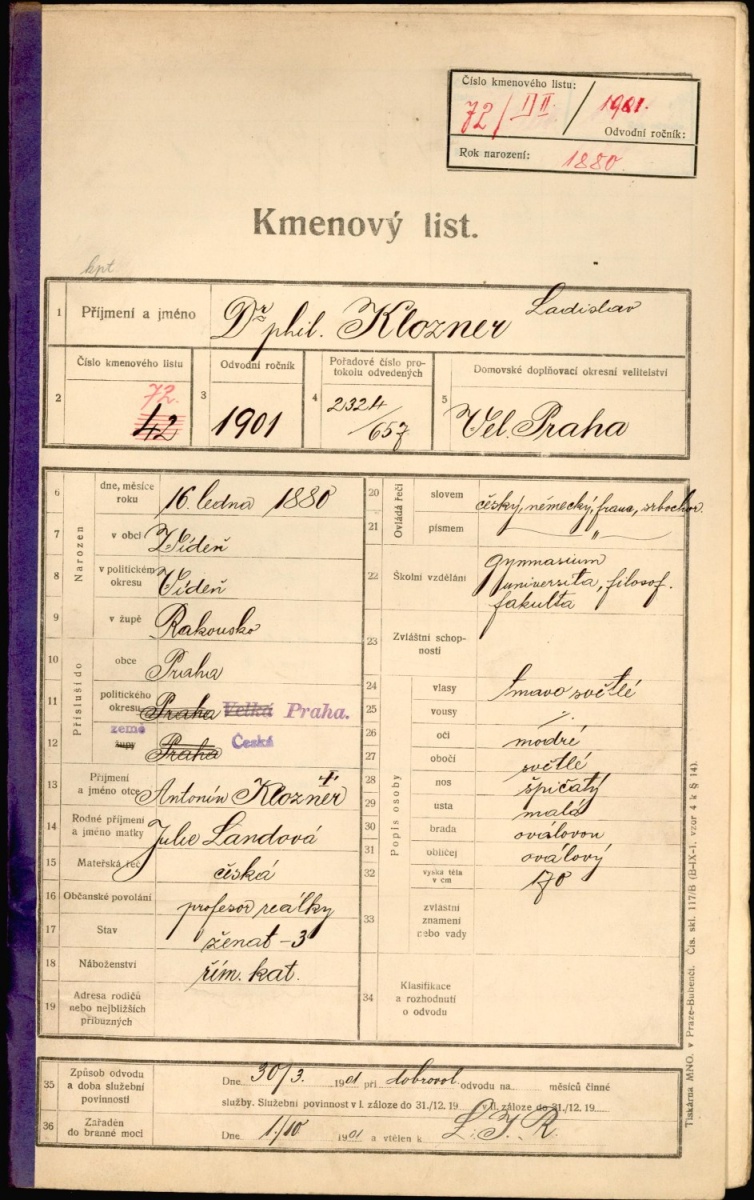 Číslo kmenového listu:
72/II 1901.
Odvodní ročník:
Rok narození: 1880.
Kmenový list.
kpt
1 Příjmení a jméno Dr phil. Klozner Ladislav
Číslo kmenového listu
2 72. 42
Odvodní ročník
3 1901
Pořadové číslo pro-
tokolu odvedených
4 2324/657
Domovské doplňovací okresní velitelství
5 Vel. Praha
Narozen
6 dne, měsíce
roku 16. ledna 1880
7 v obci Vídeň
8 v politickém
okresu Vídeň
9 v župě Rakousko
Přísluší do
10 obce Praha
11 politického
okresu Praha Velká Praha.
země
12 župy Praha Česká
13 Příjmení
a jméno otce Antonín Klozner †
14 Rodné příjmení
a jméno matky Julie Landová
15 Mateřská řeč česká
16 Občanské povolání profesor reálky
17 Stav ženat - 3
18 Náboženství řím. kat.
19 Adresa rodičů
nebo nejbližších
příbuzných
Ovládá řeči
20 slovem český, německý, franc, srbochor.
21 písmem "
22 Školní vzdělání gymnasium
universita, filosof.
fakulta
23 Zvláštní schop-
nosti
Popis osoby
24 vlasy tmavo světlé
25 vousy ./.
26 oči modré
27 obočí světlé
28 nos špičatý
29 ústa malá
30 brada oválovou
31 obličej oválový
32 výška těla
v cm 170
33 zvláštní
znamení
nebo vady
34 Klasifikace
a rozhodnutí
o odvodu
35 Způsob odvodu
a doba služební
povinnosti
Dne 30/3. 1901 při dobrovol. odvodu na měsíců činné
služby. Služební povinnost v I. záloze do 31./12. 19 v II. záloze do 31./12. 19
36 Zařaděn
do branné moci
Dne 1./10 1901 a vtělen k L. I. R.
Tiskárna MNO. v Praze-Bubenči. Čís. skl. 117/B (B-IX-1. vzor 4 k § 14).